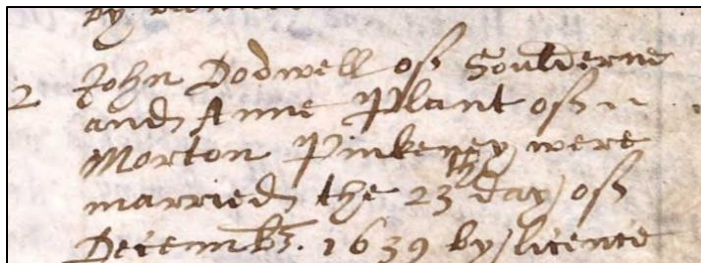 by
2 John Dodwell of Soulderne
and Anne Plant of
Morton Pinkeney were
married the 23th day of
Decemb. 1639 by licence